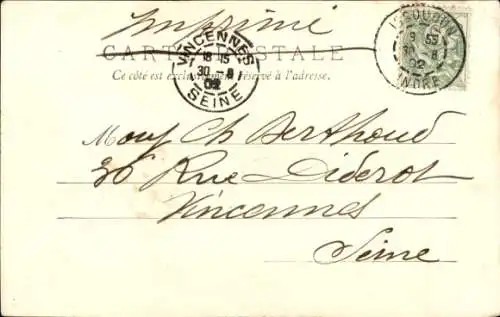 Imprimé
CARTE POSTALE
Ce côté est exclusivement réservé à l'adresse.
VINCENNES
18 15
30 -8
02
SEINE
ISSOUDUN
30 8
02
INDRE
Mons Ch Berthoud
36 Rue Diderot
Vincennes
Seine